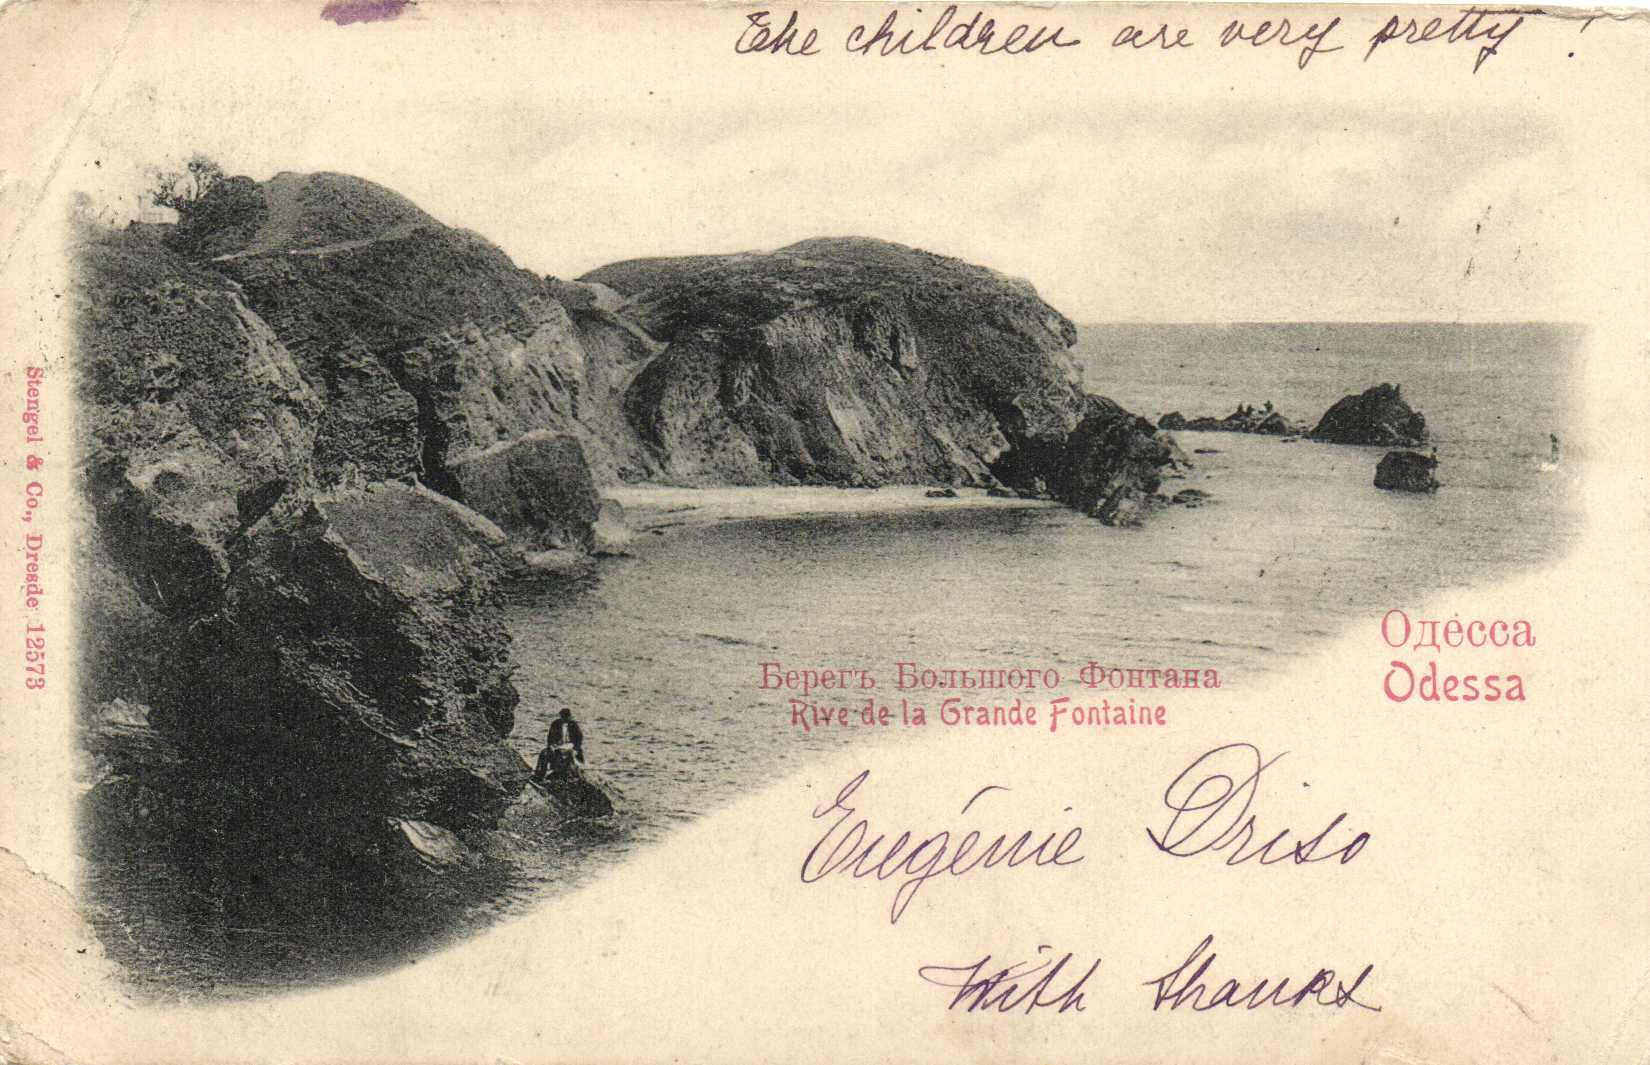 The children are very pretty!
Stengel & Co., Dresde 12573
Одесса
Odessa
Берегъ Большого Фонтана
Rive de la Grande Fontaine
Eugénie Driso
With thanks